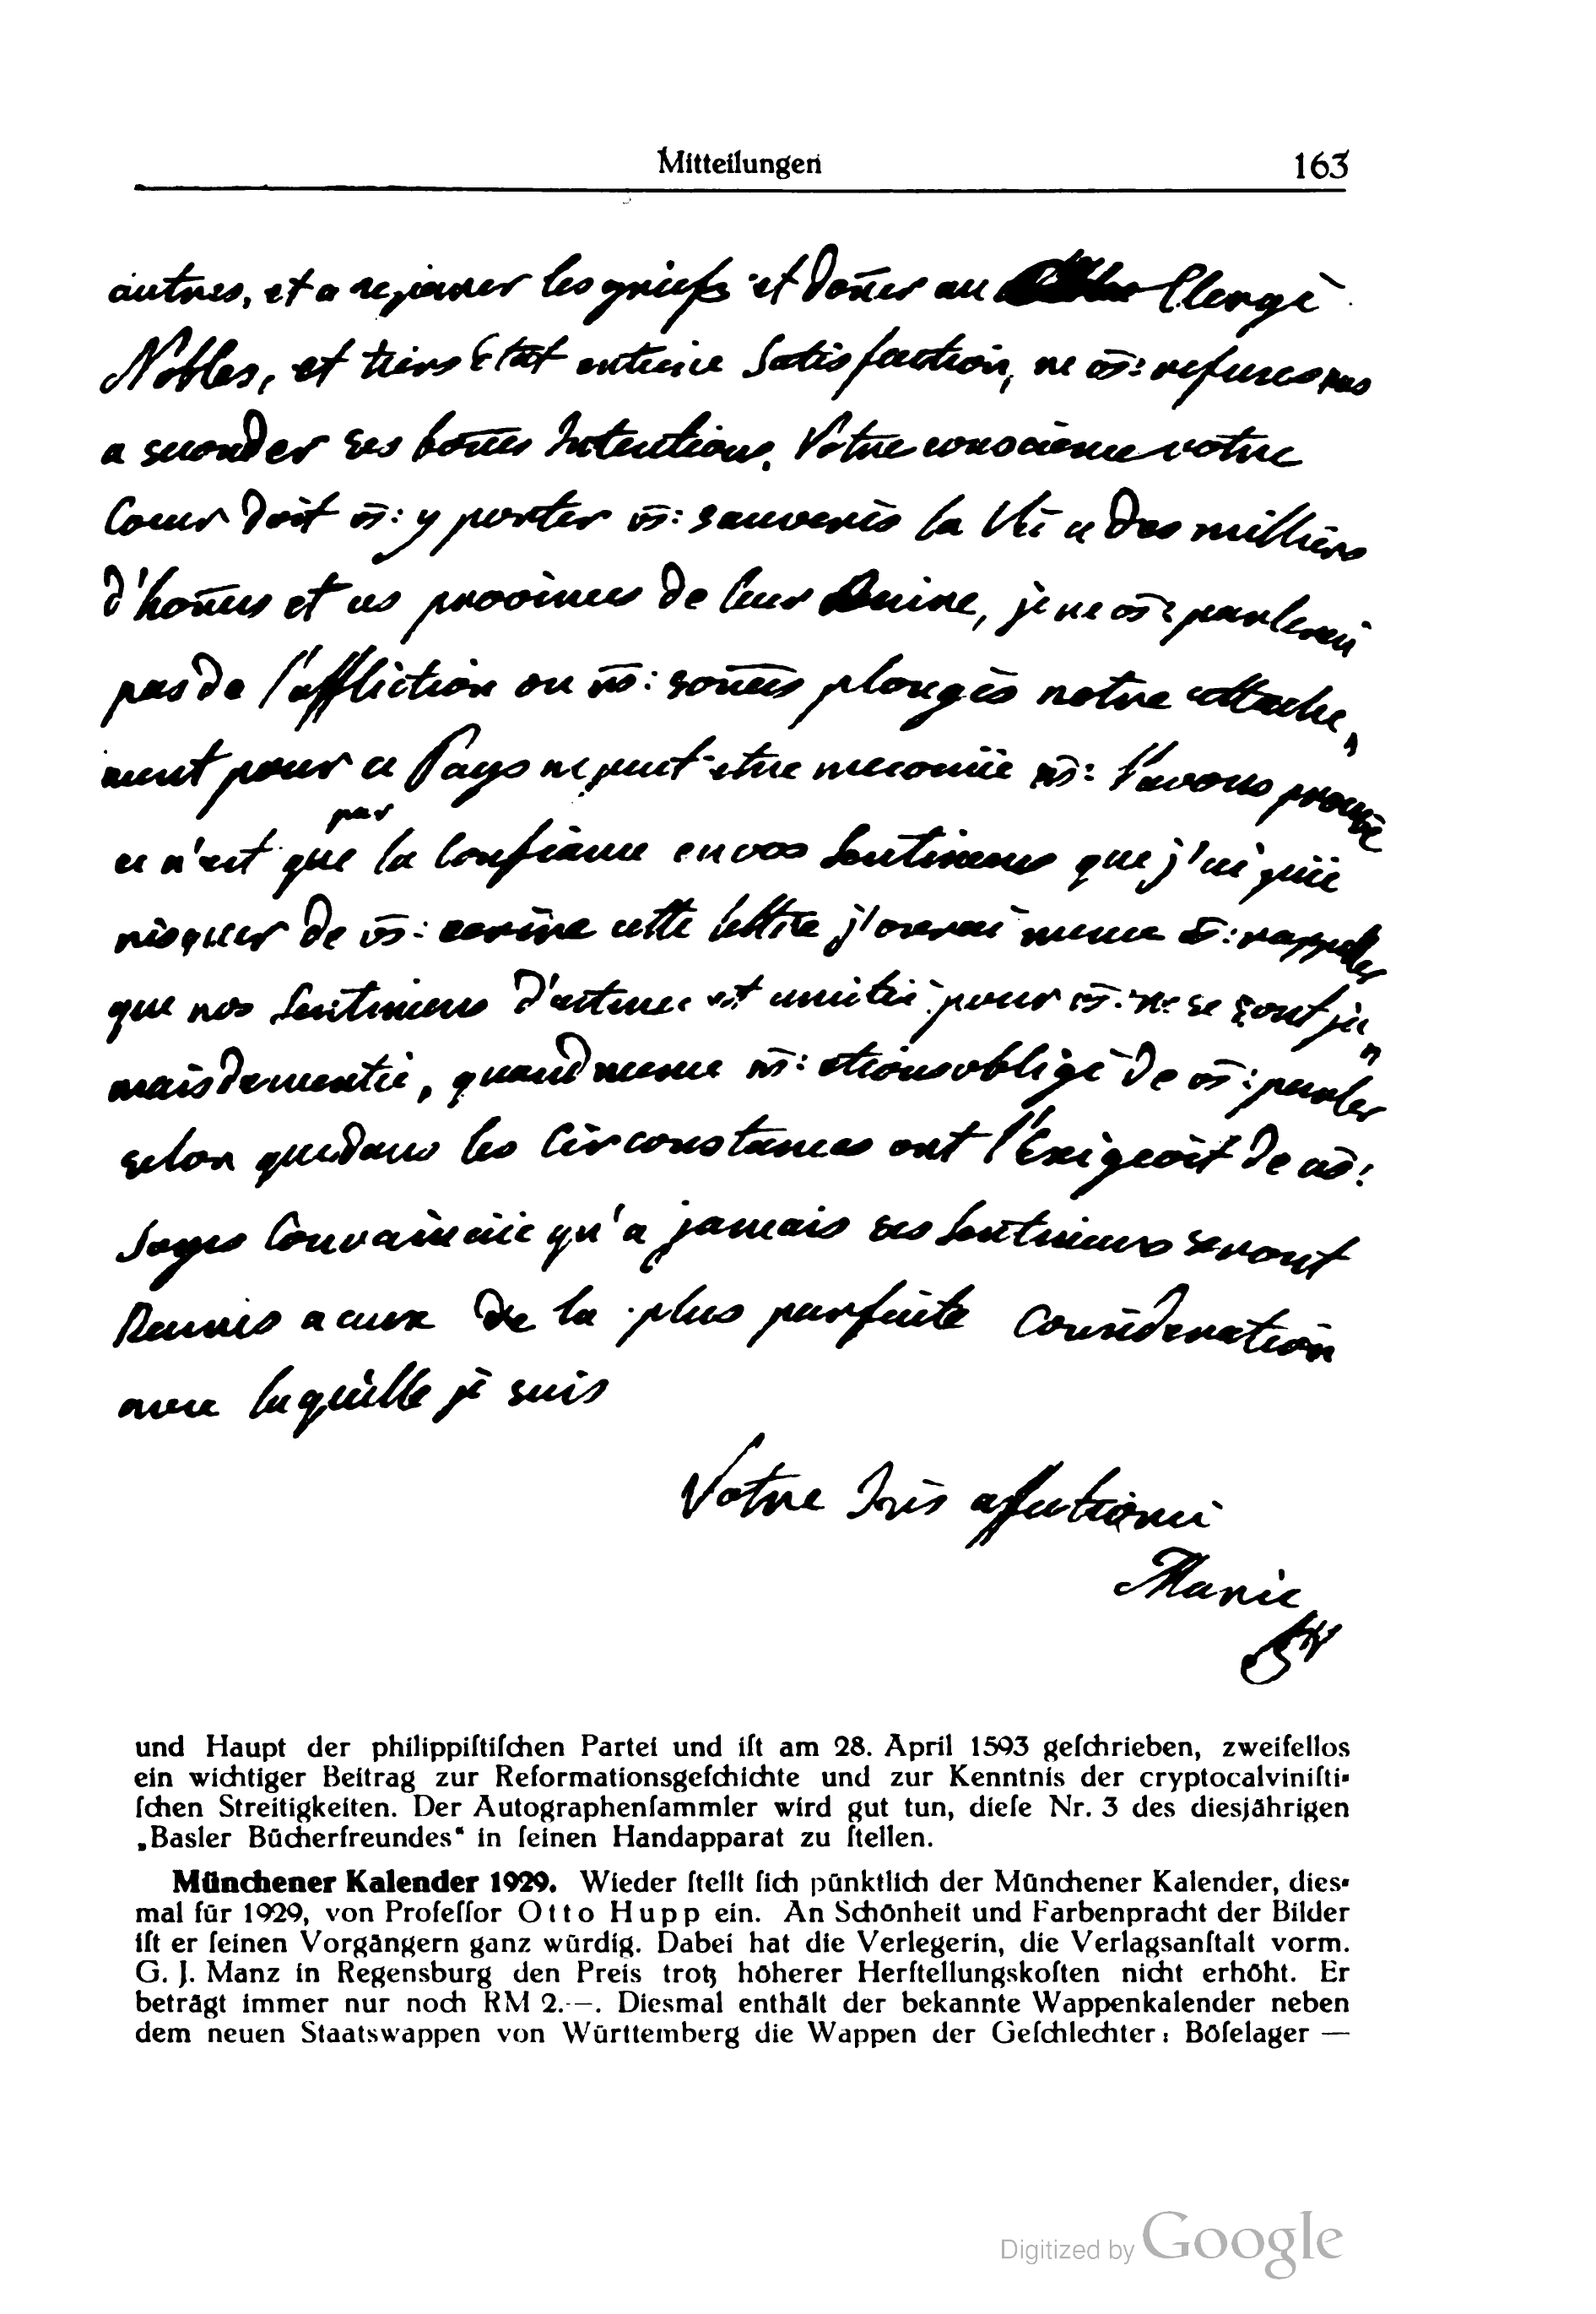 Mitteilungen 163
autres, et a reparer les griefs et doñer au Clergè
Nobles, et tiers Etat entiere Satisfaction, ne vs̄: refuses pas
a seconder ses boñes Intentions. Votre conscience votre
Coeur doit vs̄: y porter vs̄: sauverès la Vie a des milliers
d'homes et ces provinces de leur Ruine, je ne vs̄: parlerai
pas de l'affliction ou ns̄: somes plongès notre attache„
ment pour ce Pays ne peut etre meconüe ns̄: l'avons prouvè
par
ce n'est que la Confiance en vos Sentimens que j'ai püe
risquer de vs̄: ecrire cette lettre j'oserai meme vs̄: rappeller
que nos Sentimens d'estime et amitiè pour vs̄: ne se sont ja„
mais dementie, quand meme ns̄: etions obligè de vs̄: parler
selon que les Circonstances ont l'Exigeoit de ns̄:
Soyes Convaincüe qu'a jamais ses Sentimens seront
Reunis a ceux de la plus parfaite Consideration
avec laquelle je suis
Votre très affectionè
Marie
und Haupt der philippiſtiſchen Partei und iſt am 28. April 1593 geſchrieben, zweifellos
ein wichtiger Beitrag zur Reformationsgeſchichte und zur Kenntnis der cryptocalviniſti-
ſchen Streitigkeiten. Der Autographenſammler wird gut tun, dieſe Nr. 3 des diesjährigen
„Basler Bücherfreundes“ in ſeinen Handapparat zu ſtellen.
Münchener Kalender 1929. Wieder ſtellt ſich pünktlich der Münchener Kalender, dies-
mal für 1929, von Profeſſor Otto Hupp ein. An Schönheit und Farbenpracht der Bilder
iſt er ſeinen Vorgängern ganz würdig. Dabei hat die Verlegerin, die Verlagsanſtalt vorm.
G. J. Manz in Regensburg den Preis trotz höherer Herſtellungskoſten nicht erhöht. Er
beträgt immer nur noch RM 2.—. Diesmal enthält der bekannte Wappenkalender neben
dem neuen Staatswappen von Württemberg die Wappen der Geſchlechter: Böſelager —
Digitized by Google